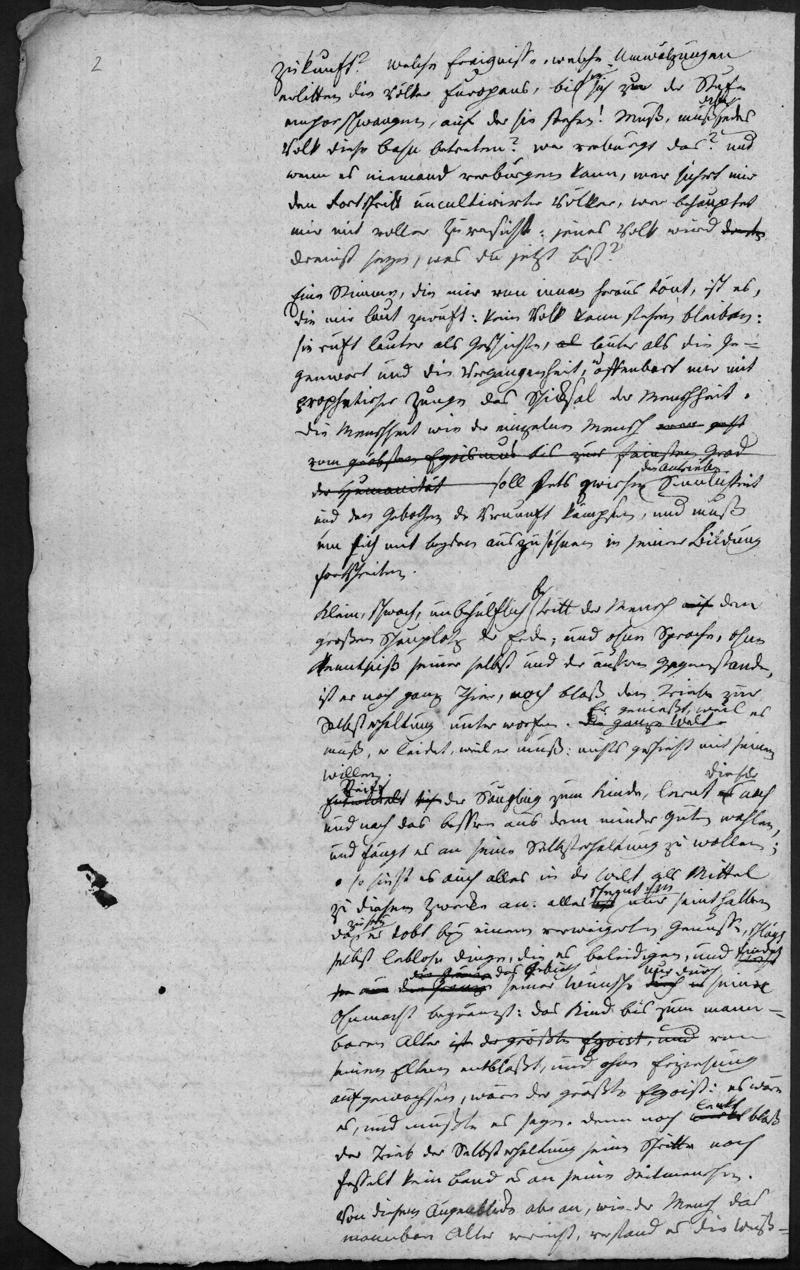 2
Zukunft? welche Ereignisse, welche Umwälzungen
erlitten die Völker Europens, bis sie sich zu der Stufe
emporschwangen, auf der sie stehen! Muß, muß jedes
Volk diese Bahn betreten? wer verbürgt das? und
wenn es niemand verbürgen kann, wer sichert mir
den Fortschritt uncultivirter Völker, wer behauptet
mir mit voller Zuversicht: jenes Volk wird
dereinst seyn, was du jetzt bist?
Eine Stimme, die mir von innen heraus tönt, ist es,
die mir laut zuruft: kein Volk kann stehen bleiben:
sie ruft lauter als Geschichte, lauter als die Ge=
genwart und die Vergangenheit, offenbart mir mit
prophetischer Zunge das Schicksal der Menschheit.
Die Menschheit wie der einzelne Mensch
vom gröbsten Egoismus bis zur feinsten Grad
der Humanität soll stets zwischen den Antrieben der Sinnlichkeit
und den Gebothen der Vernunft kämpfen, und muß
um sich mit beyden auszusöhnen in seiner Bildung
fortschreiten.
Klein, schwach, unbehülflich betritt der Mensch auf den
großen Schauplatz der Erde; und ohne Sprache, ohne
Kenntniß seiner selbst und der äußern Gegenstände,
ist er noch ganz Thier, noch bloß dem Triebe zur
Selbsterhaltung unterworfen. Er genießt, weil es
muß, er leidet, weil er muß: nichts geschieht mit seinem
willen.
Reift der Säugling zum Kinde, lernt dieses nach
und nach das bessere aus dem minder guten wählen,
und fängt es an seine Selbsterhaltung zu wollen;
so sieht es auch alles in der Welt als Mittel
zu diesem Zwecke an: alles nur seinethalben
da zu seyn tobt bey einem verweigerten Genusse, schlägt
selbst leblose Dinge, die es beleidigen, und findet
das Gebieth seiner Wünsche nur durch seine
Ohnmacht begränzt: das Kind bis zum mann=
baren Alter ist der größte Egoist, und von
seinen Eltern entblößt, und ohne Erziehung
aufgewachsen, wäre der größte Egoist: es wäre
es, und müßte es seyn. denn noch lenkt bloß
der Trieb der Selbsterhaltung seine Schritte noch
fesselt kein Band es an seine Mitmenschen.
Von diesem Augenblicke aber an, wie der Mensch das
mannbare Alter erreicht, verstand er die